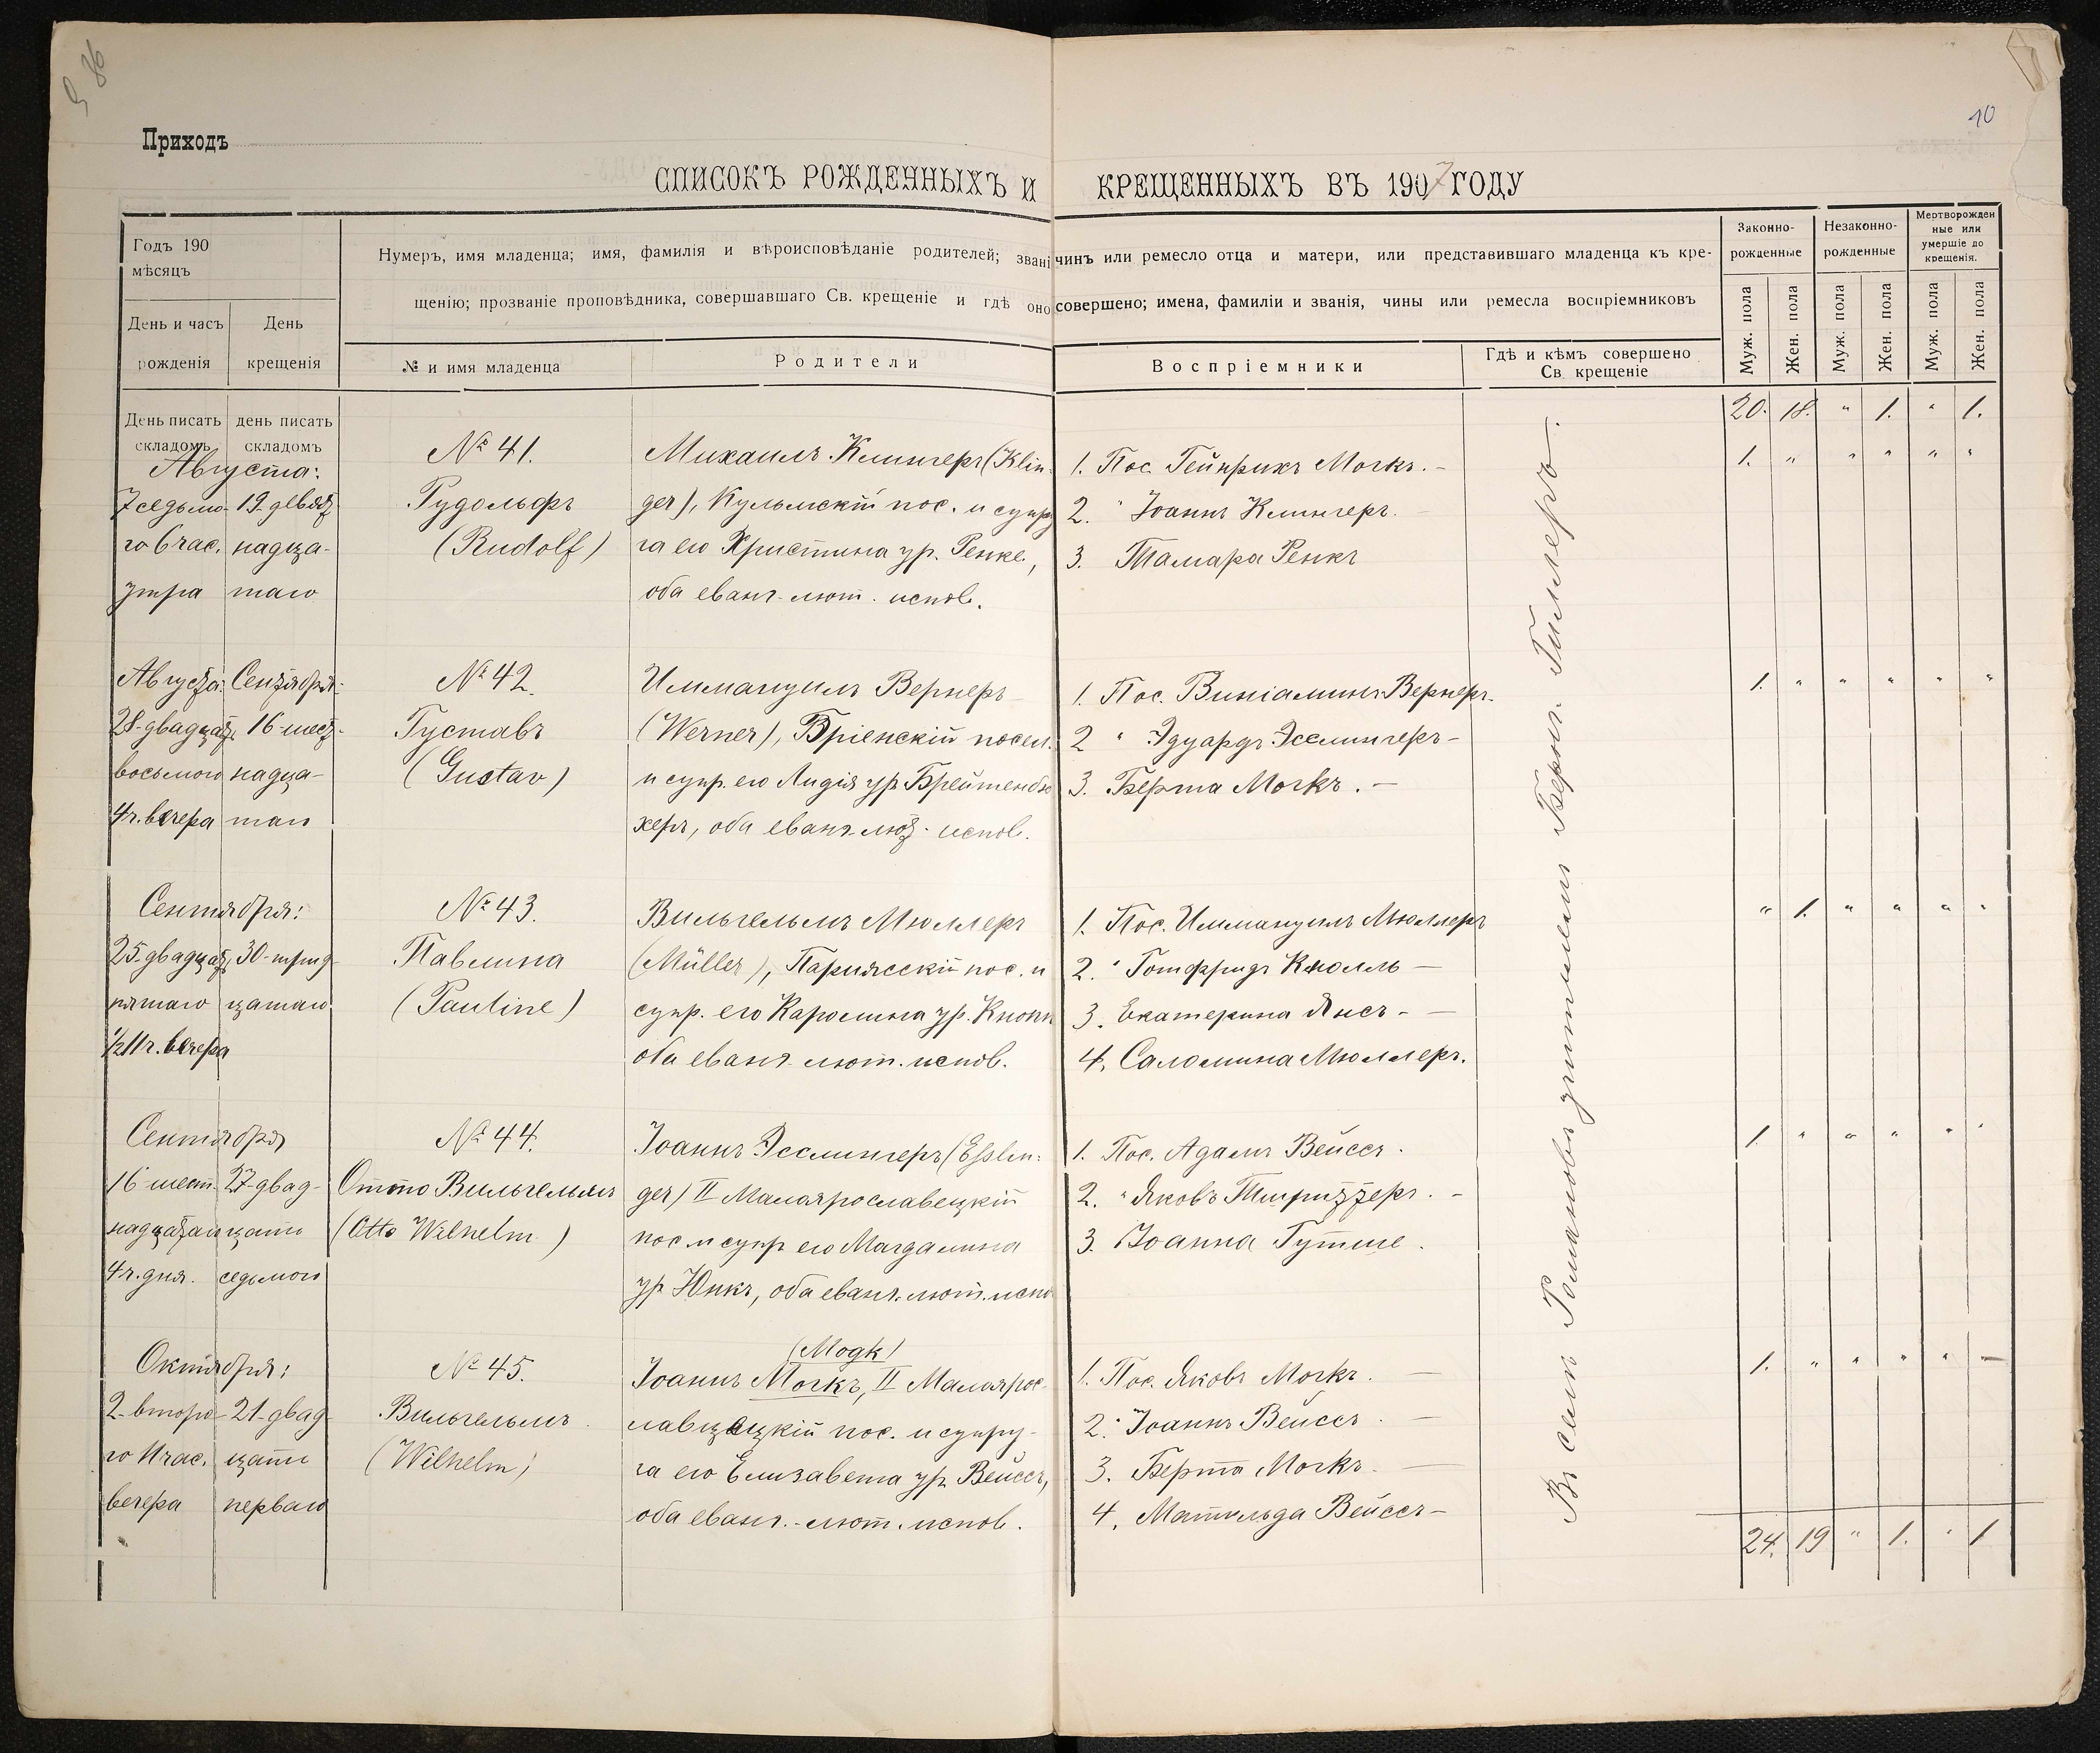 10
Приходъ
СПИСОКЪ РОЖДЕННЫХЪ И КРЕЩЕННЫХЪ ВЪ 1907 ГОДУ
Годъ 190
мѣсяцъ
День и часъ рожденія
День крещенія
Нумеръ, имя младенца; имя, фамилія и вѣроисповѣданіе родителей; званi чинъ или ремесло отца и матери, или представившаго младенца къ кре-
щенію; прозваніе проповѣдника, совершавшаго Св. крещеніе и гдѣ оно совершено; имена, фамиліи и званія, чины или ремесла воспріемниковъ
№ и имя младенца
Родители
Воспріемники
Гдѣ и кѣмъ совершено
Св. крещеніе
Законно-
рожденные
Незаконно-
рожденные
Мертворожден
ные или
умершіе до
крещенія.
Муж. пола
Жен. пола
Муж. пола
Жен. пола
Муж. пола
Жен. пола
День писать
складомъ
день писать
складомъ
20. 18. " 1. " 1.
Августа:
7 седьмо-
го 6 час.
утра
19. девят
надца-
таго
№ 41.
Рудольфъ
(Rudolf)
Михаилъ Клингеръ (Klin-
ger), Кульмскій пос. и супру
га его Христина ур. Ренке,
оба еванг-лют. испов.
1. Пос. Гейнрихъ Могкъ. -
2. " Іоаннъ Клингеръ.
3. Тамара Ренкъ
1. " " " " "
Августа:
28-двадцать
восьмого
4 ч. вечера
Сентября:
16-шест-
надца-
таго
№ 42.
Густавъ
(Gustav)
Иммануилъ Вернеръ
(Werner), Бріенскій посел.
и супр. его Лидія ур. Брейтенбю
херъ, оба еванг-лют. испов.
1. Пос. Виніаминъ Вернеръ.
2 " Эдуардъ Эсслингеръ -
3. Берта Могкъ. -
1. " " " " "
Сентября:
25. двадцать
пятаго
½11 ч. вечера
30-трид-
цатаго
№ 43.
Павлина
(Pauline)
Вильгельмъ Мюллеръ
(Müller), Паризсскій пос. и
супр. его Каролина ур.
оба еванг-лют. испов.
1. Пос. Иммануилъ Мюллеръ
2. " Готфридъ Кнолль -
3. Екатерина Янсъ -
4. Саломина Мюллеръ.
" 1. " " " "
Сентября
16-шест-
надцатаго
4 ч. дня.
27-двад-
цать
седьмого
№ 44.
Отто Вильгельмъ
(Otto Wilhelm)
Іоаннъ Эсслингеръ (Eßlin-
ger) II Малаярославецкій
пос и супр его Магдалина
ур Юнкъ, оба еванг.-лют. испо
1. Пос. Адамъ Вейссъ.
2. " Яковъ -
3. Іоанна Гутше.
1. " " " " "
Октября:
2-второ-
го 11 час.
вечера
21-двад-
цать
перваго
№ 45.
Вильгельмъ
(Wilhelm)
(Mogk)
Іоаннъ Могкъ, II Малаярос-
лавецкій пос. и супру-
га его Елизавета ур Вейссъ,
оба еванг.-лют. испов.
1. Пос. Яковъ Могкъ. -
2. " Іоаннъ Вейссъ. -
3. Берта Могкъ. -
4. Матильда Вейссъ -
1. " " " " -
Въ сел. Романовъ учителемъ Гиллеръ.
24. 19 " 1. " 1